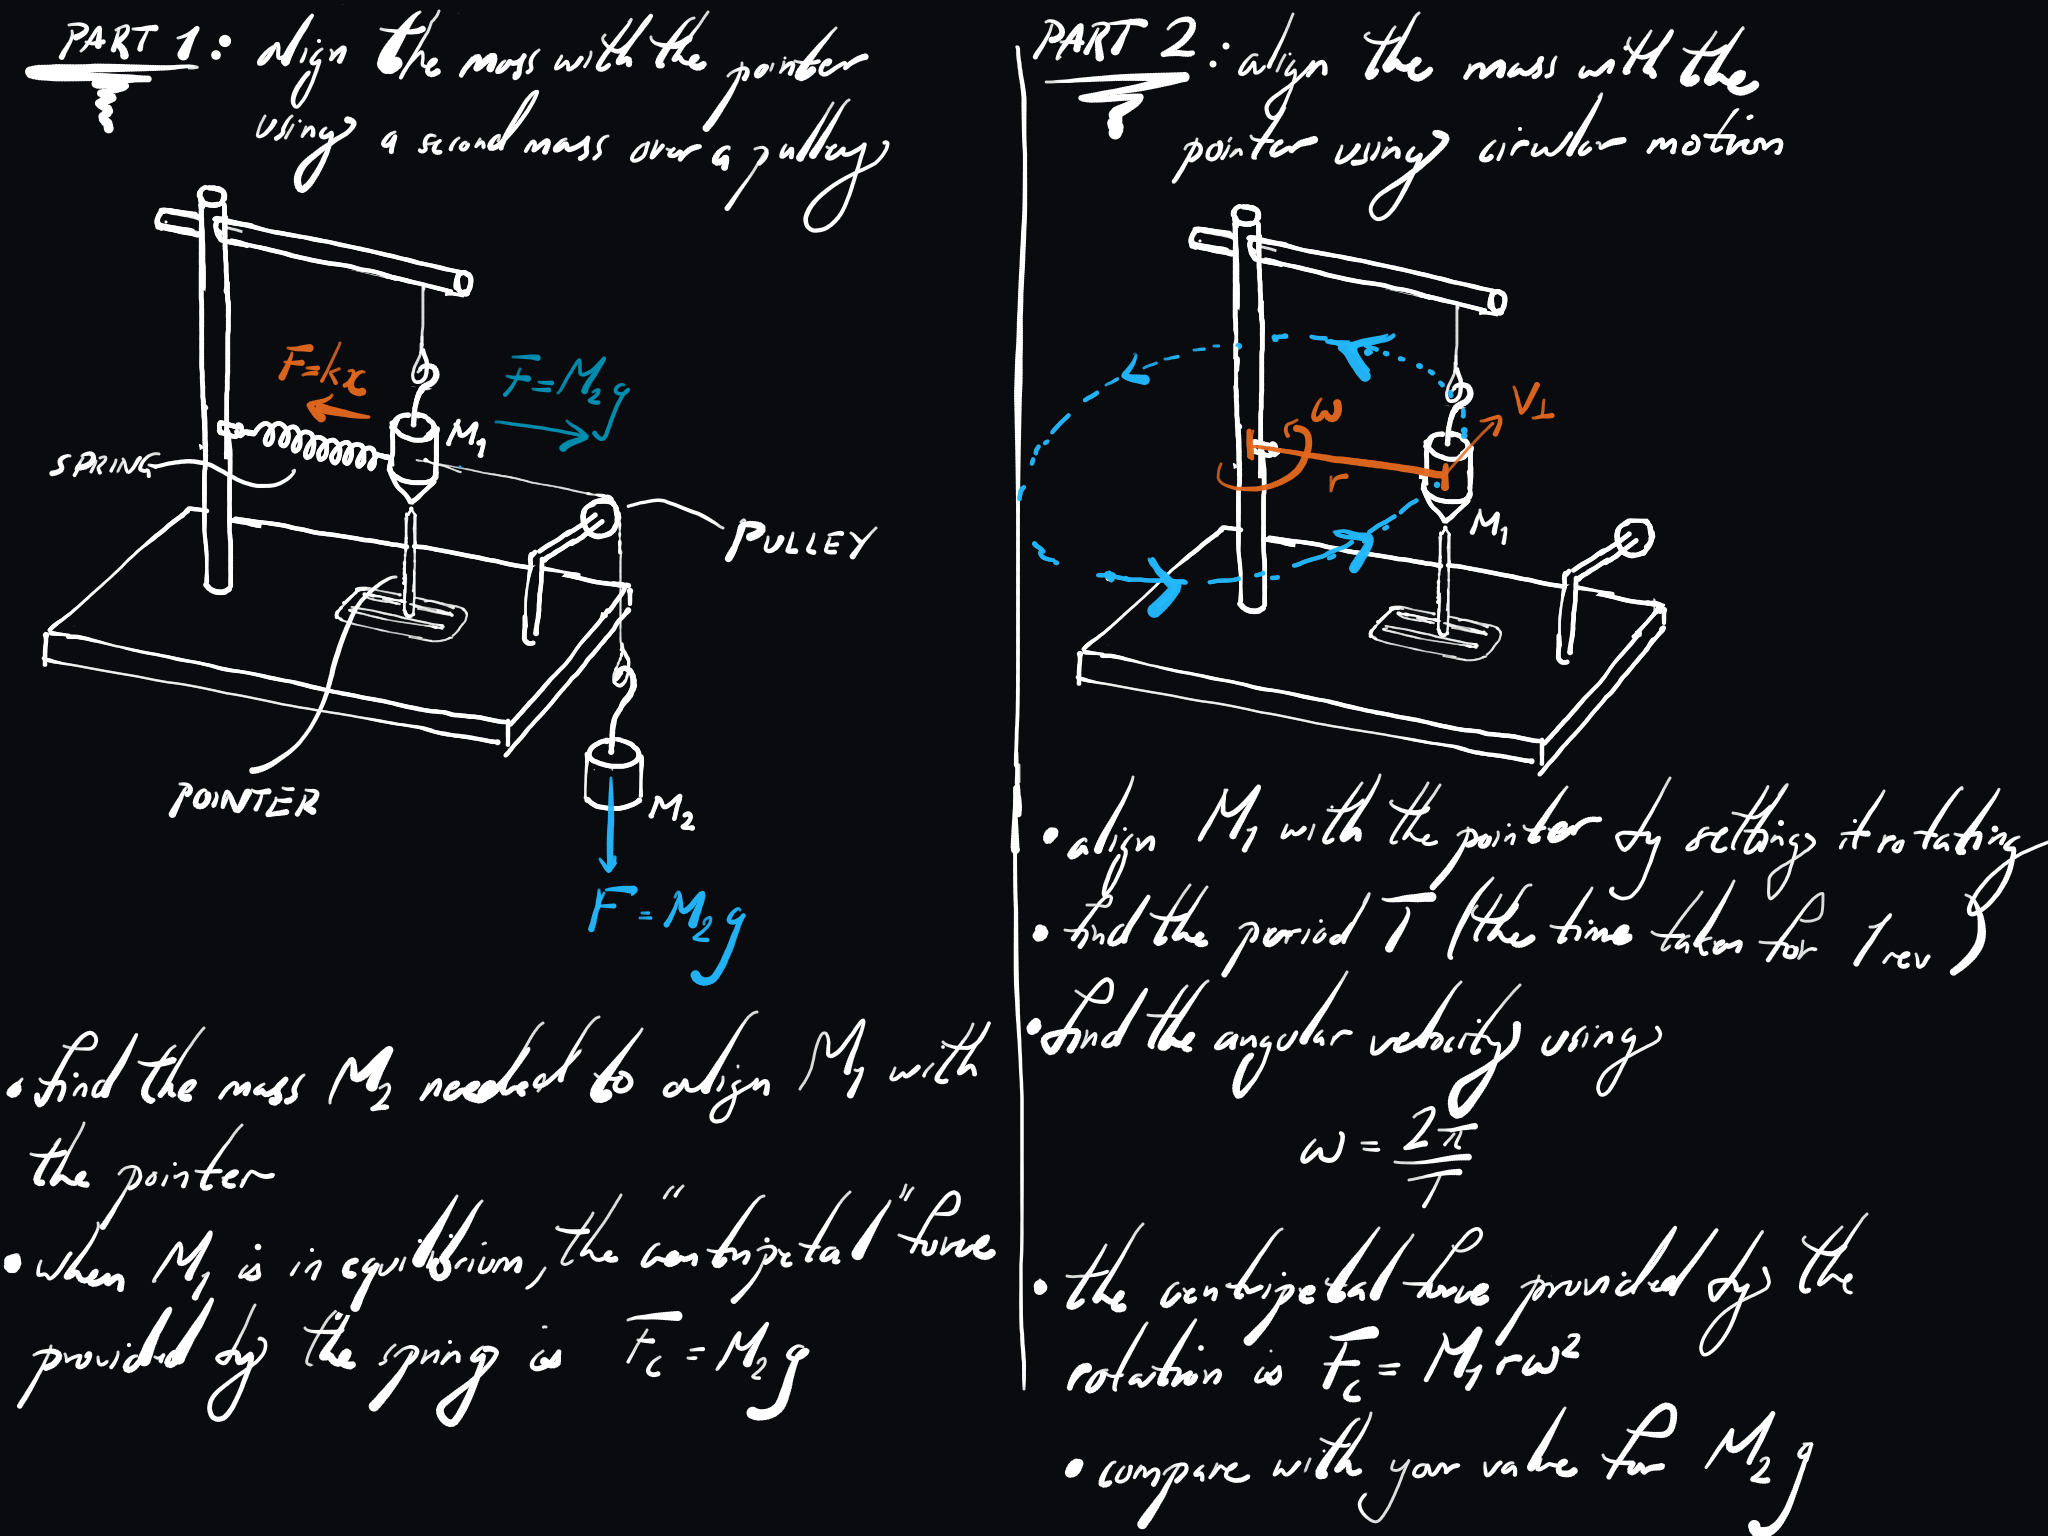 PART 1: align the mass with the pointer
using a second mass over a pulley
F=kx
F=M₂g
M₁
SPRING
PULLEY
POINTER
M₂
F=M₂g
• find the mass M₂ needed to align M₁ with
the pointer
• when M₁ is in equilibrium, the "centripetal" force
provided by the spring is F_c = M₂g
PART 2: align the mass with the
pointer using circular motion
ω
V⊥
r
M₁
• align M₁ with the pointer by setting it rotating
• find the period T (the time taken for 1 rev)
• find the angular velocity using
ω = 2π/T
• the centripetal force provided by the
rotation is F_c = M₁rω²
• compare with your value for M₂g